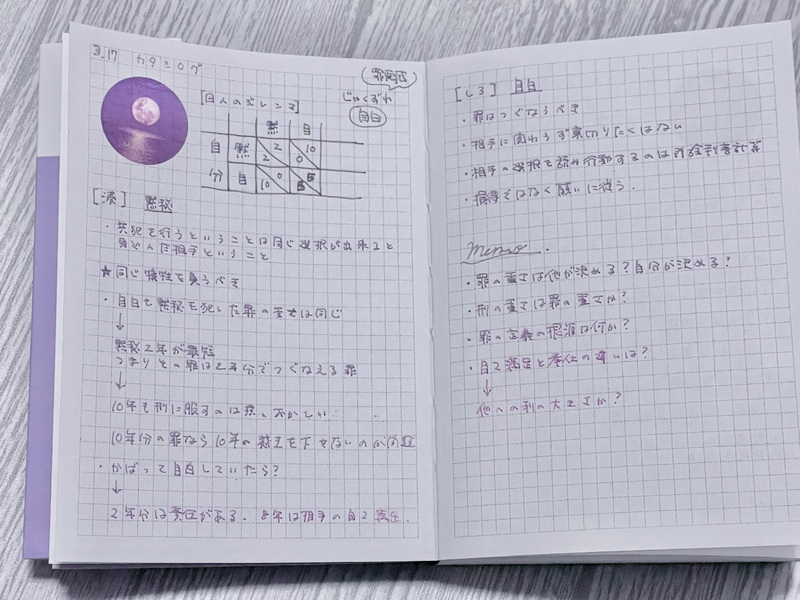 3.17 カタニログ
罪悪感
[囚人のジレンマ]
じゃくずれ
自白
黙 自
自 黙 2 2 10 0
分 自 0 10 5 5
[湊] 黙秘
・共犯を行うということは同じ選択が出来ると
見込んだ相手ということ
★同じ犠牲を負うべき
・自白も黙秘も犯した罪の重さは同じ
↓
黙秘2年が最短
つまりその罪は2年分でつぐなえる罪
↓
10年も刑に服すのは おかしい
10年分の罪なら10年の を下せないのが
・かばって自白していたら?
↓
2年分は責任がある。8年は相手の自己
[しろ] 自白
・罪はつぐなうべき
・相手に関わらず裏切りたくはない
・相手の選択を読み行動するのは
・損得ではなく願いに従う.
Memo
・罪の重さは他が決める?自分が決める?
・刑の重さは罪の重さか?
・罪の定義の根源は何か?
・自己満足と奉仕の違いは?
↓
他への利の大きさか?